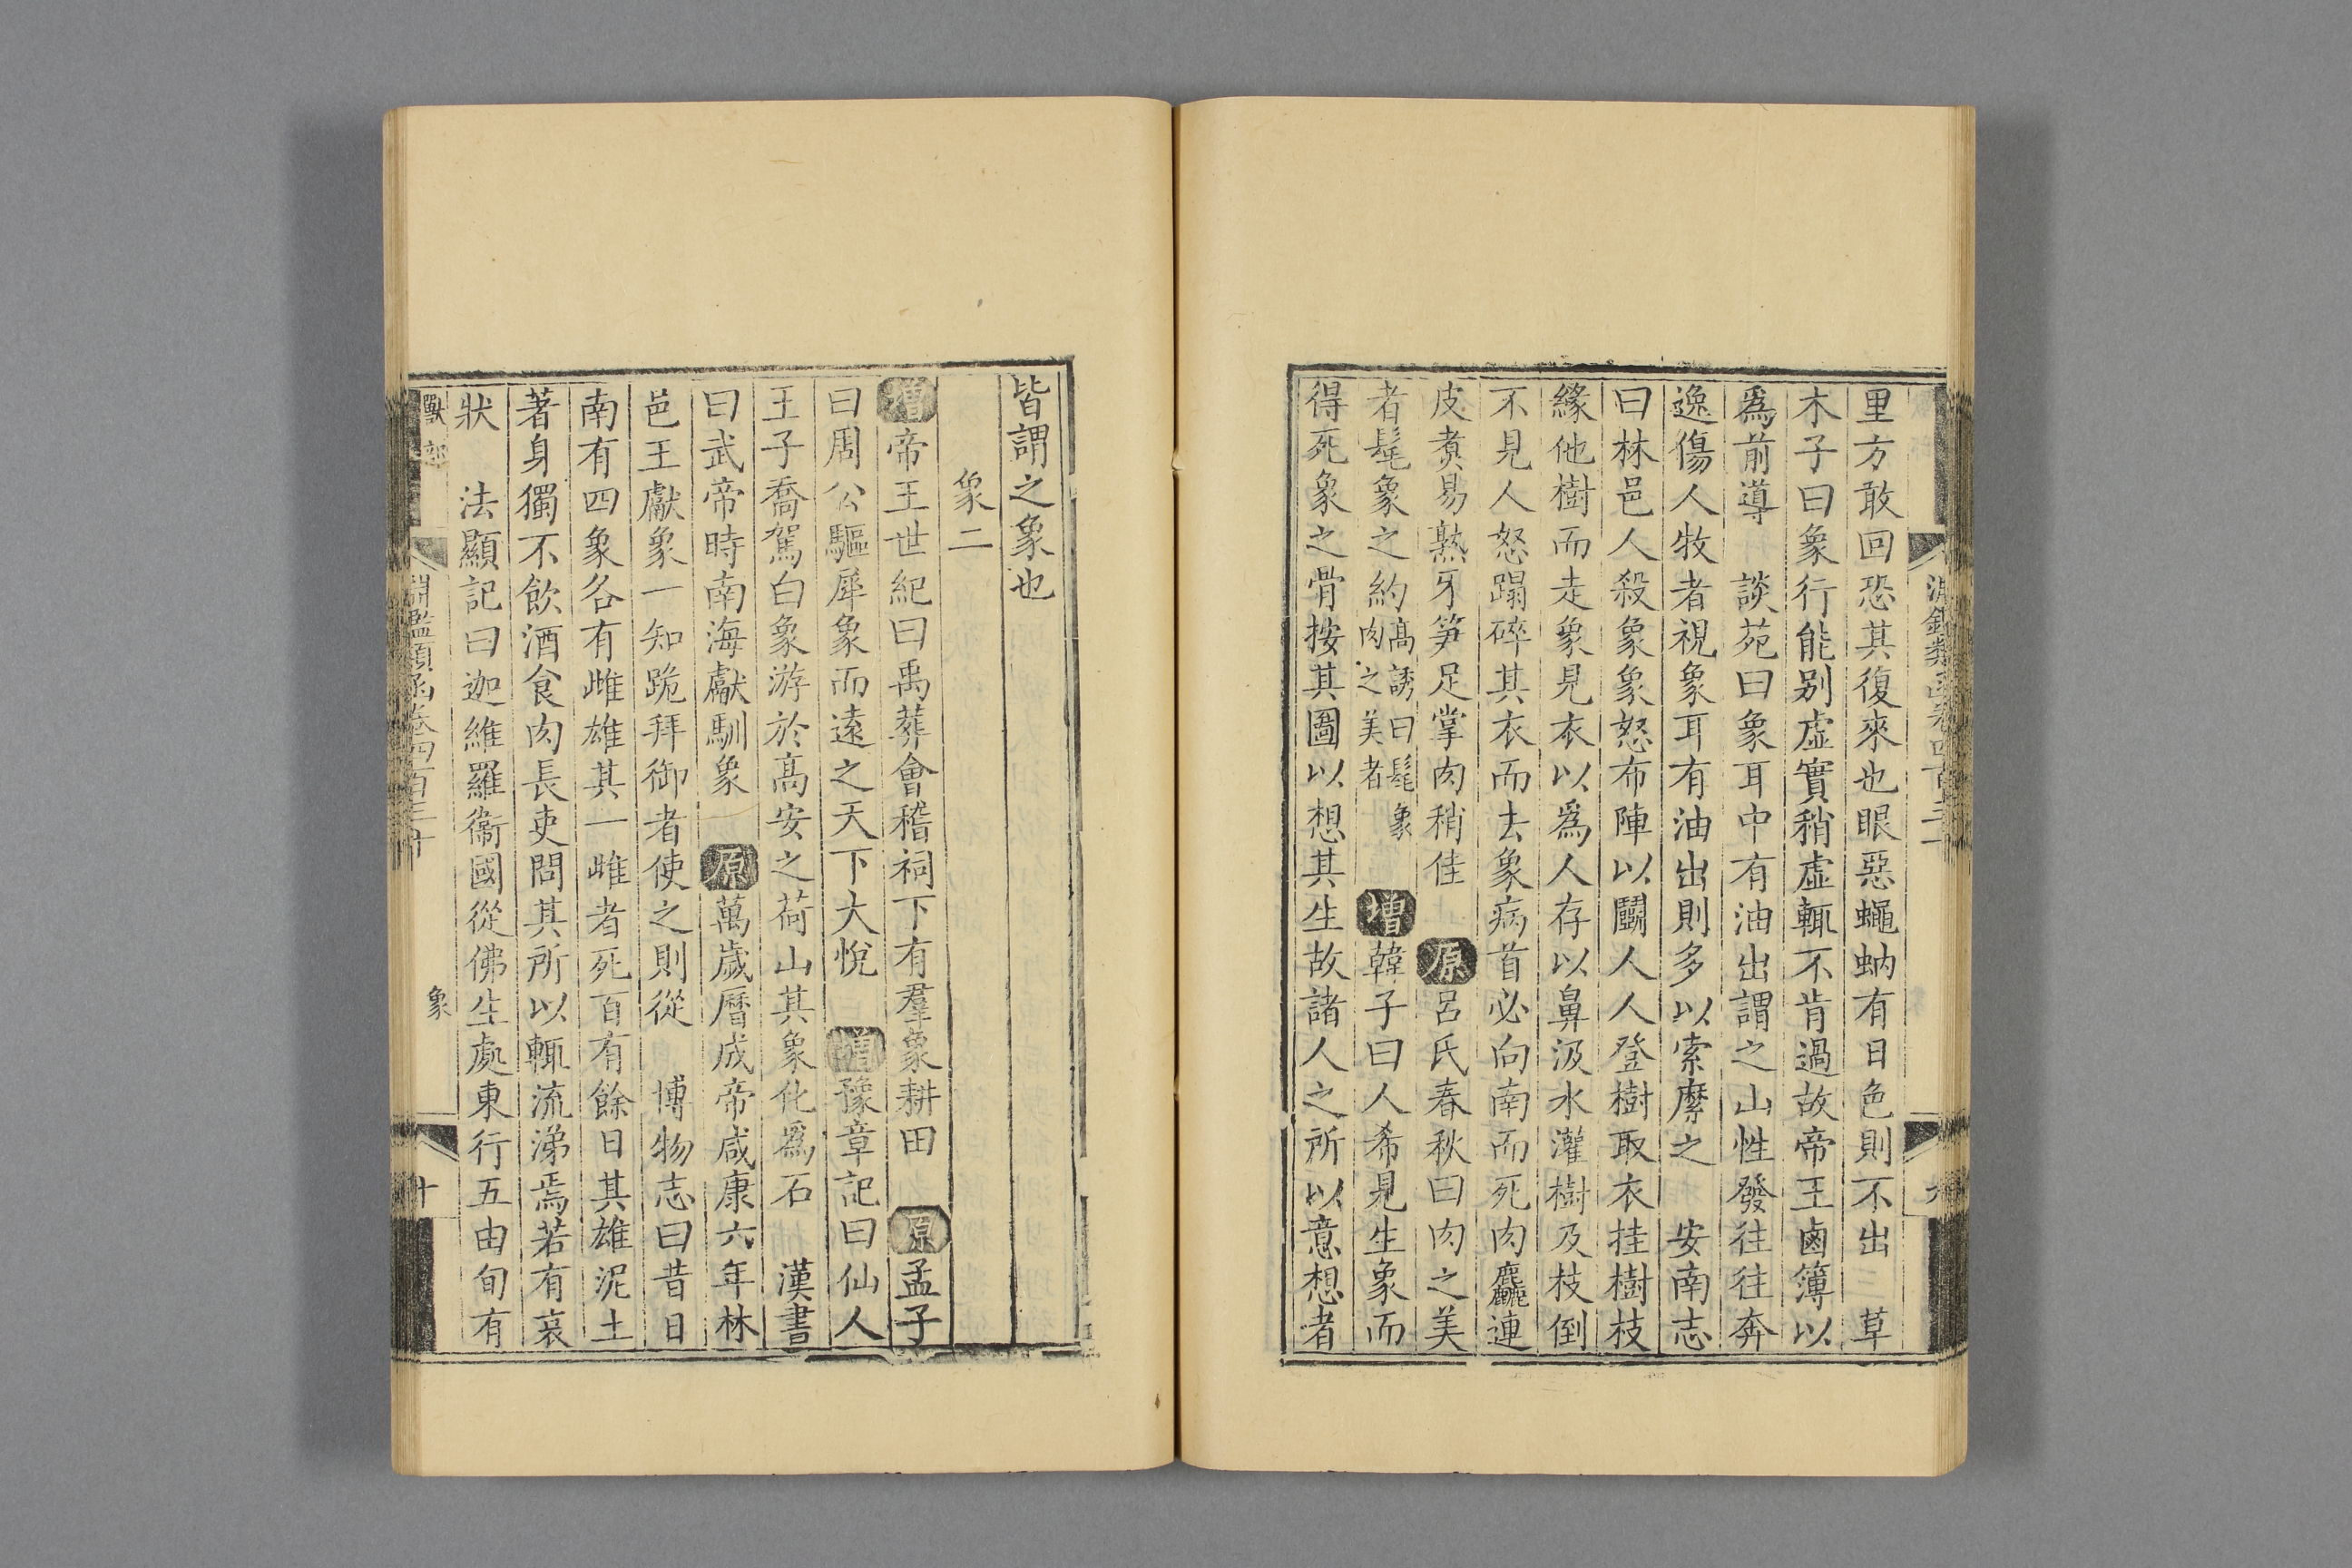 里方敢回恐其復來也眼惡蠅蚋有日色則不出　草
木子曰象行能别虛實稍虛輒不肯過故帝王鹵簿以
爲前導　談苑曰象耳中有油出謂之山性發往往奔
逸傷人牧者視象耳有油出則多以索縻之　安南志
曰林邑人殺象象怒布陣以鬬人人登樹取衣挂樹枝
緣他樹而走象見衣以爲人存以鼻汲水灌樹及枝倒
不見人怒蹋碎其衣而去象病首必向南而死肉麤連
皮煑易熟牙笋足掌肉稍佳　原吕氏春秋曰肉之美
者髦象之約高誘曰髦象肉之美者　增韓子曰人希見生象而
得死象之骨按其圖以想其生故諸人之所以意想者
皆謂之象也
象二
增帝王世紀曰禹葬會稽祠下有羣象耕田　原孟子
曰周公驅犀象而遠之天下大悅　增豫章記曰仙人
王子喬駕白象游於高安之荷山其象化爲石　漢書
曰武帝時南海獻馴象　原萬歲曆成帝咸康六年林
邑王獻象一知跪拜御者使之則從　博物志曰昔日
南有四象各有雌雄其一雌者死百有餘日其雄泥土
著身獨不飲酒食肉長吏問其所以輒流涕焉若有哀
狀　法顯記曰迦維羅衞國從佛生處東行五由旬有
獸部
淵鑑類函卷四百三十
象
十